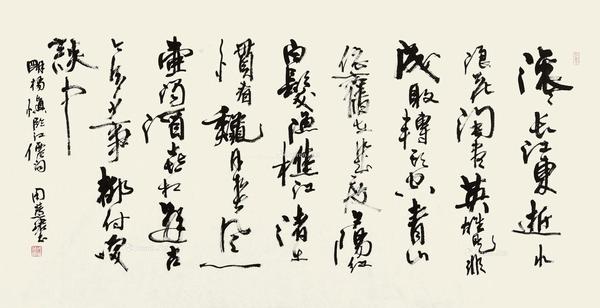 滚滚長江東逝水
浪花淘盡英雄是非
成敗轉頭空青山
依舊在幾度夕陽紅
白髮漁樵江渚上
慣看秋月春風一
壺濁酒喜相逢古
今多少事都付笑
談中
明楊慎臨江僊詞 周慧珺书